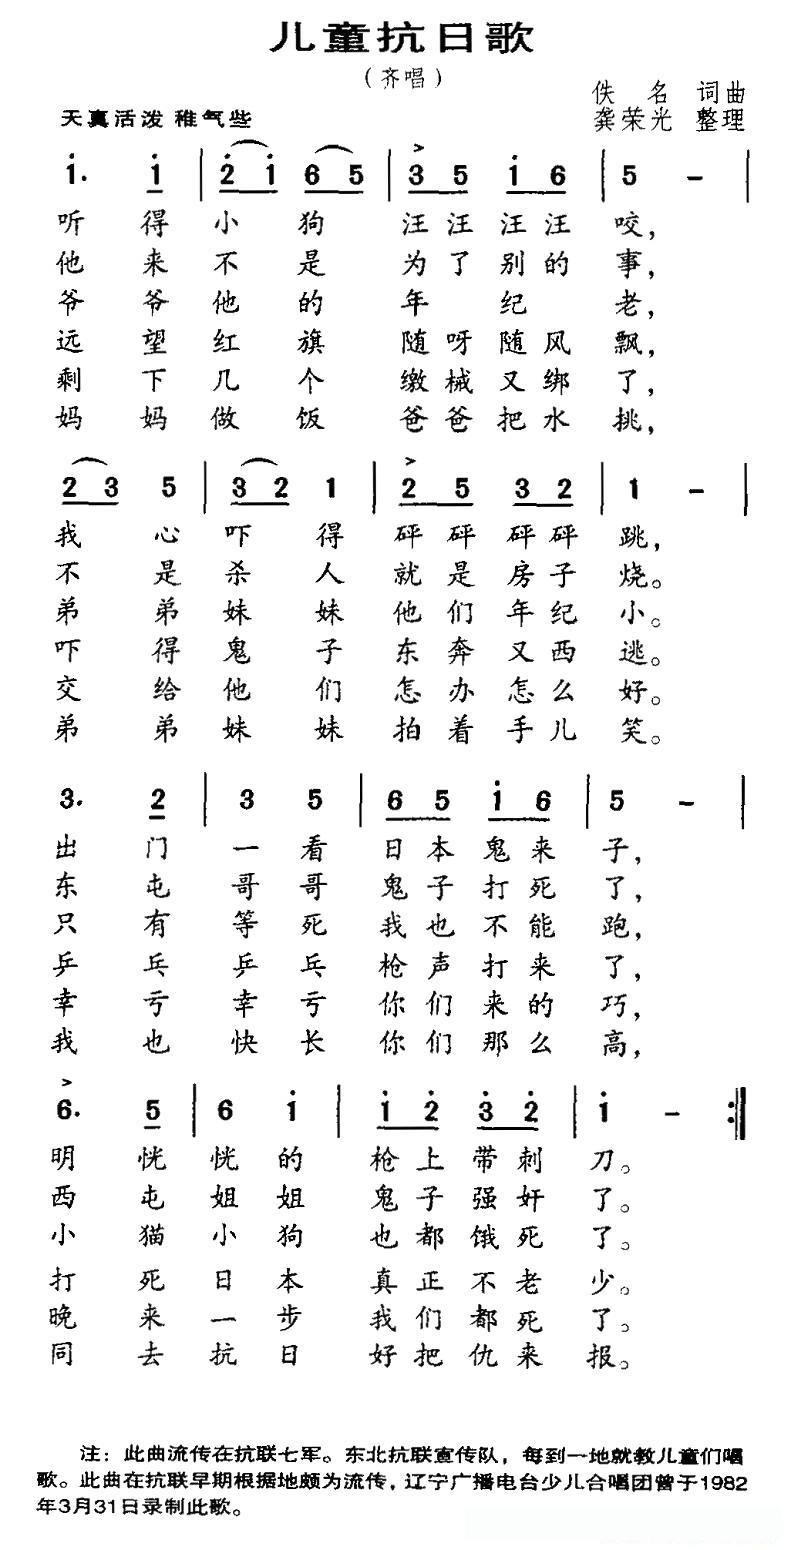 儿童抗日歌
(齐唱)
佚 名 词曲
天真活泼 稚气些
龚荣光 整理
1. 1 | 2 1 6 5 | 3 5 1 6 | 5 - |
听得小狗 汪汪汪汪咬，
他来不是 为了别的事，
爷爷他的 年纪老，
远望红旗 随呀随风飘，
剩下几个 缴械又绑了，
妈妈做饭 爸爸把水挑，
2 3 5 | 3 2 1 | 2 5 3 2 | 1 - |
我心吓得 砰砰砰砰跳，
不是杀人 就是房子烧。
弟弟妹妹 他们年纪小。
吓得鬼子 东奔又西逃。
交给他们 怎办怎么好。
弟弟妹妹 拍着手儿笑。
3. 2 | 3 5 | 6 5 1 6 | 5 - |
出门一看 日本鬼来子，
东屯哥哥 鬼子打死了，
只有等死 我也不能跑，
乒乓乒乓 枪声打来了，
幸亏幸亏 你们来的巧，
我也快长 你们那么高，
6. 5 | 6 1 | 1 2 3 2 | 1 - :|
明恍恍的 枪上带刺刀。
西屯姐姐 鬼子强奸了。
小猫小狗 也都饿死了。
打死日本 真正不老少。
晚来一步 我们都死了。
同去抗日 好把仇来报。
注：此曲流传在抗联七军。东北抗联宣传队，每到一地就教儿童们唱
歌。此曲在抗联早期根据地颇为流传，辽宁广播电台少儿合唱团曾于1982
年3月31日录制此歌。